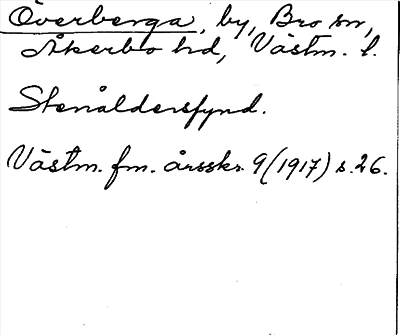 Överberga, by, Bro sn,
Åkerbo hd, Västm. l.
Stenåldersfynd.
Västm. fm. årsskr. 9 (1917) s. 26.